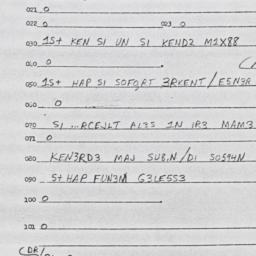 021 0
022 0 023 0
030 1S+ KEN SI UN SI KENDZ M1X88
040 0
050 1S+ HAP SI SOFORT 3RKENT/ESN3A
060 0
070 SI ...RCEJLT AL3S 1N IR3 MAM3
071 0
080 KEN3RD3 MAJ SUB.N/DI SOS94N
090 S+HAP FUN3M G3LESS3
100 0
101 0